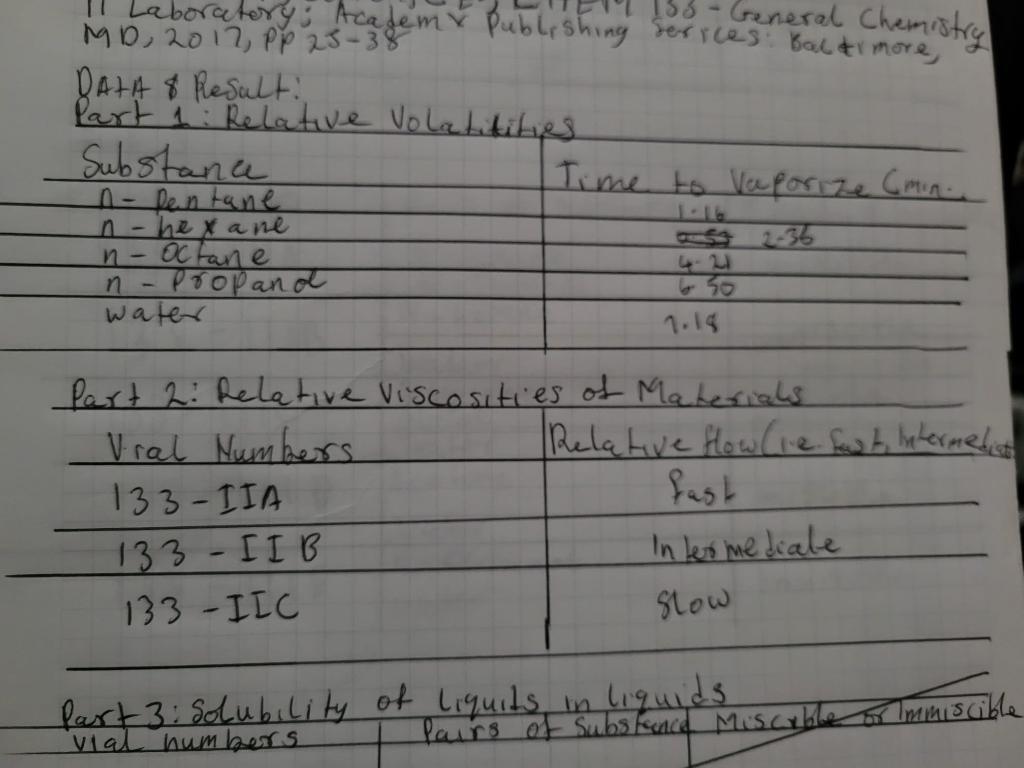 II Laboratory; Academy Publishing Services: Baltimore, 133 - General Chemistry
MD, 2017, PP 25-38
DATA & Result:
Part 1: Relative Volatilities
Substance Time to Vaporize (min.
n - Pentane 1.16
n - hexane 2.36
n - Octane 4.21
n - Propanol 6.50
water 7.18
Part 2: Relative Viscosities of Materials
Vial Numbers Relative flow (i.e. fast, Intermediat
133 - IIA fast
133 - IIB Intermediate
133 - IIC Slow
Part 3: Solubility of liquids in liquids
vial numbers Pairs of Substance Miscible or Immiscible